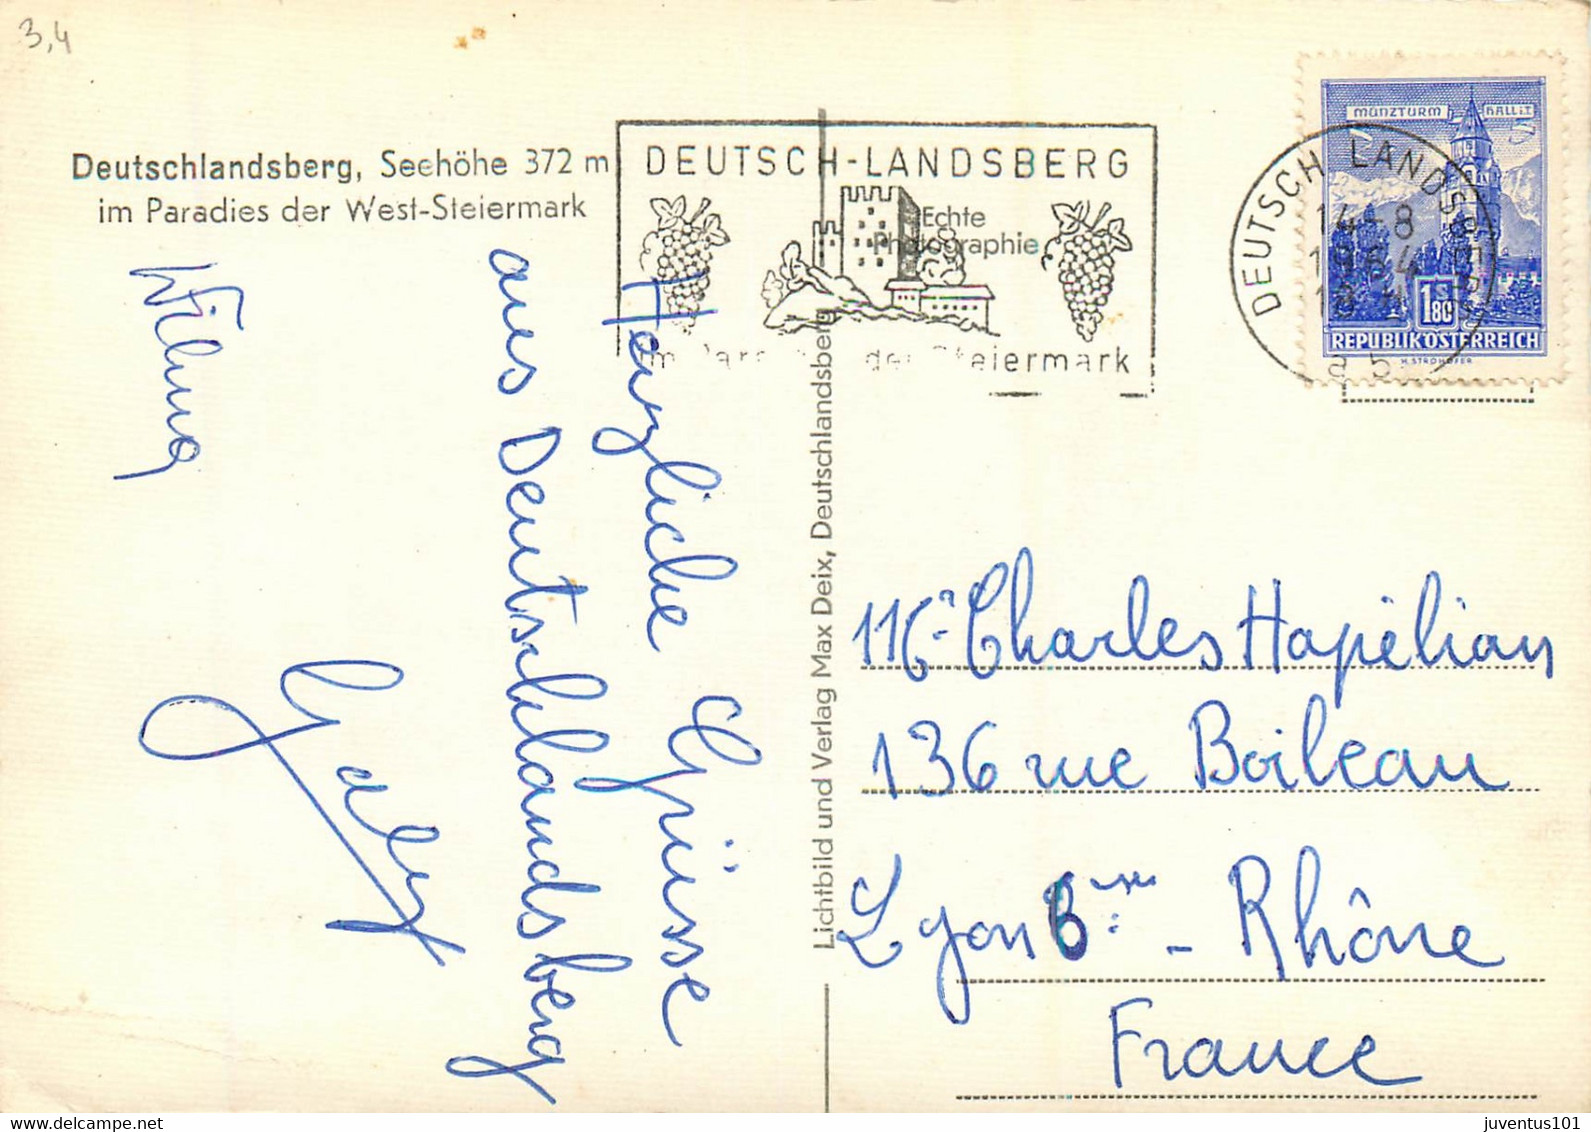 3,4
Deutschlandsberg, Seehöhe 372 m
im Paradies der West-Steiermark
DEUTSCH-LANDSBERG
Echte
Photographie
Steiermark
MÜNZTURM HALL i.T.
DEUTSCH LANDSBERG
14-8
1964
1.80
S
REPUBLIK ÖSTERREICH
H. STROHOFER
Herzliche Grüsse
aus Deutschlandsberg
Gaby
Lichtbild und Verlag Max Deix, Deutschlandsberg
Charles Hapélian
136 rue Boileau
Lyon 6ème - Rhône
France
juventus101